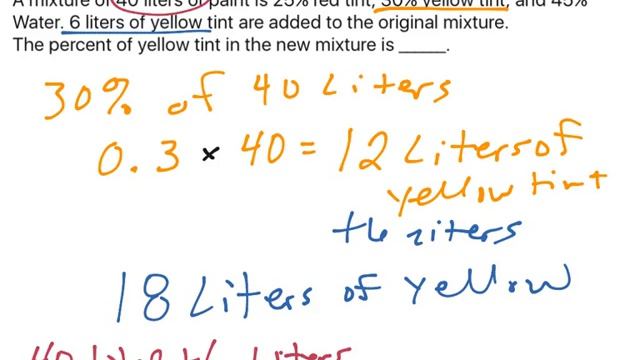 A mixture of 40 liters of paint is 25% red tint, 30% yellow tint, and 45%
Water. 6 liters of yellow tint are added to the original mixture.
The percent of yellow tint in the new mixture is ______.
30% of 40 Liters
0.3 × 40 = 12 Liters of
yellow tint
+6 liters
18 Liters of Yellow
40 Liters Liters